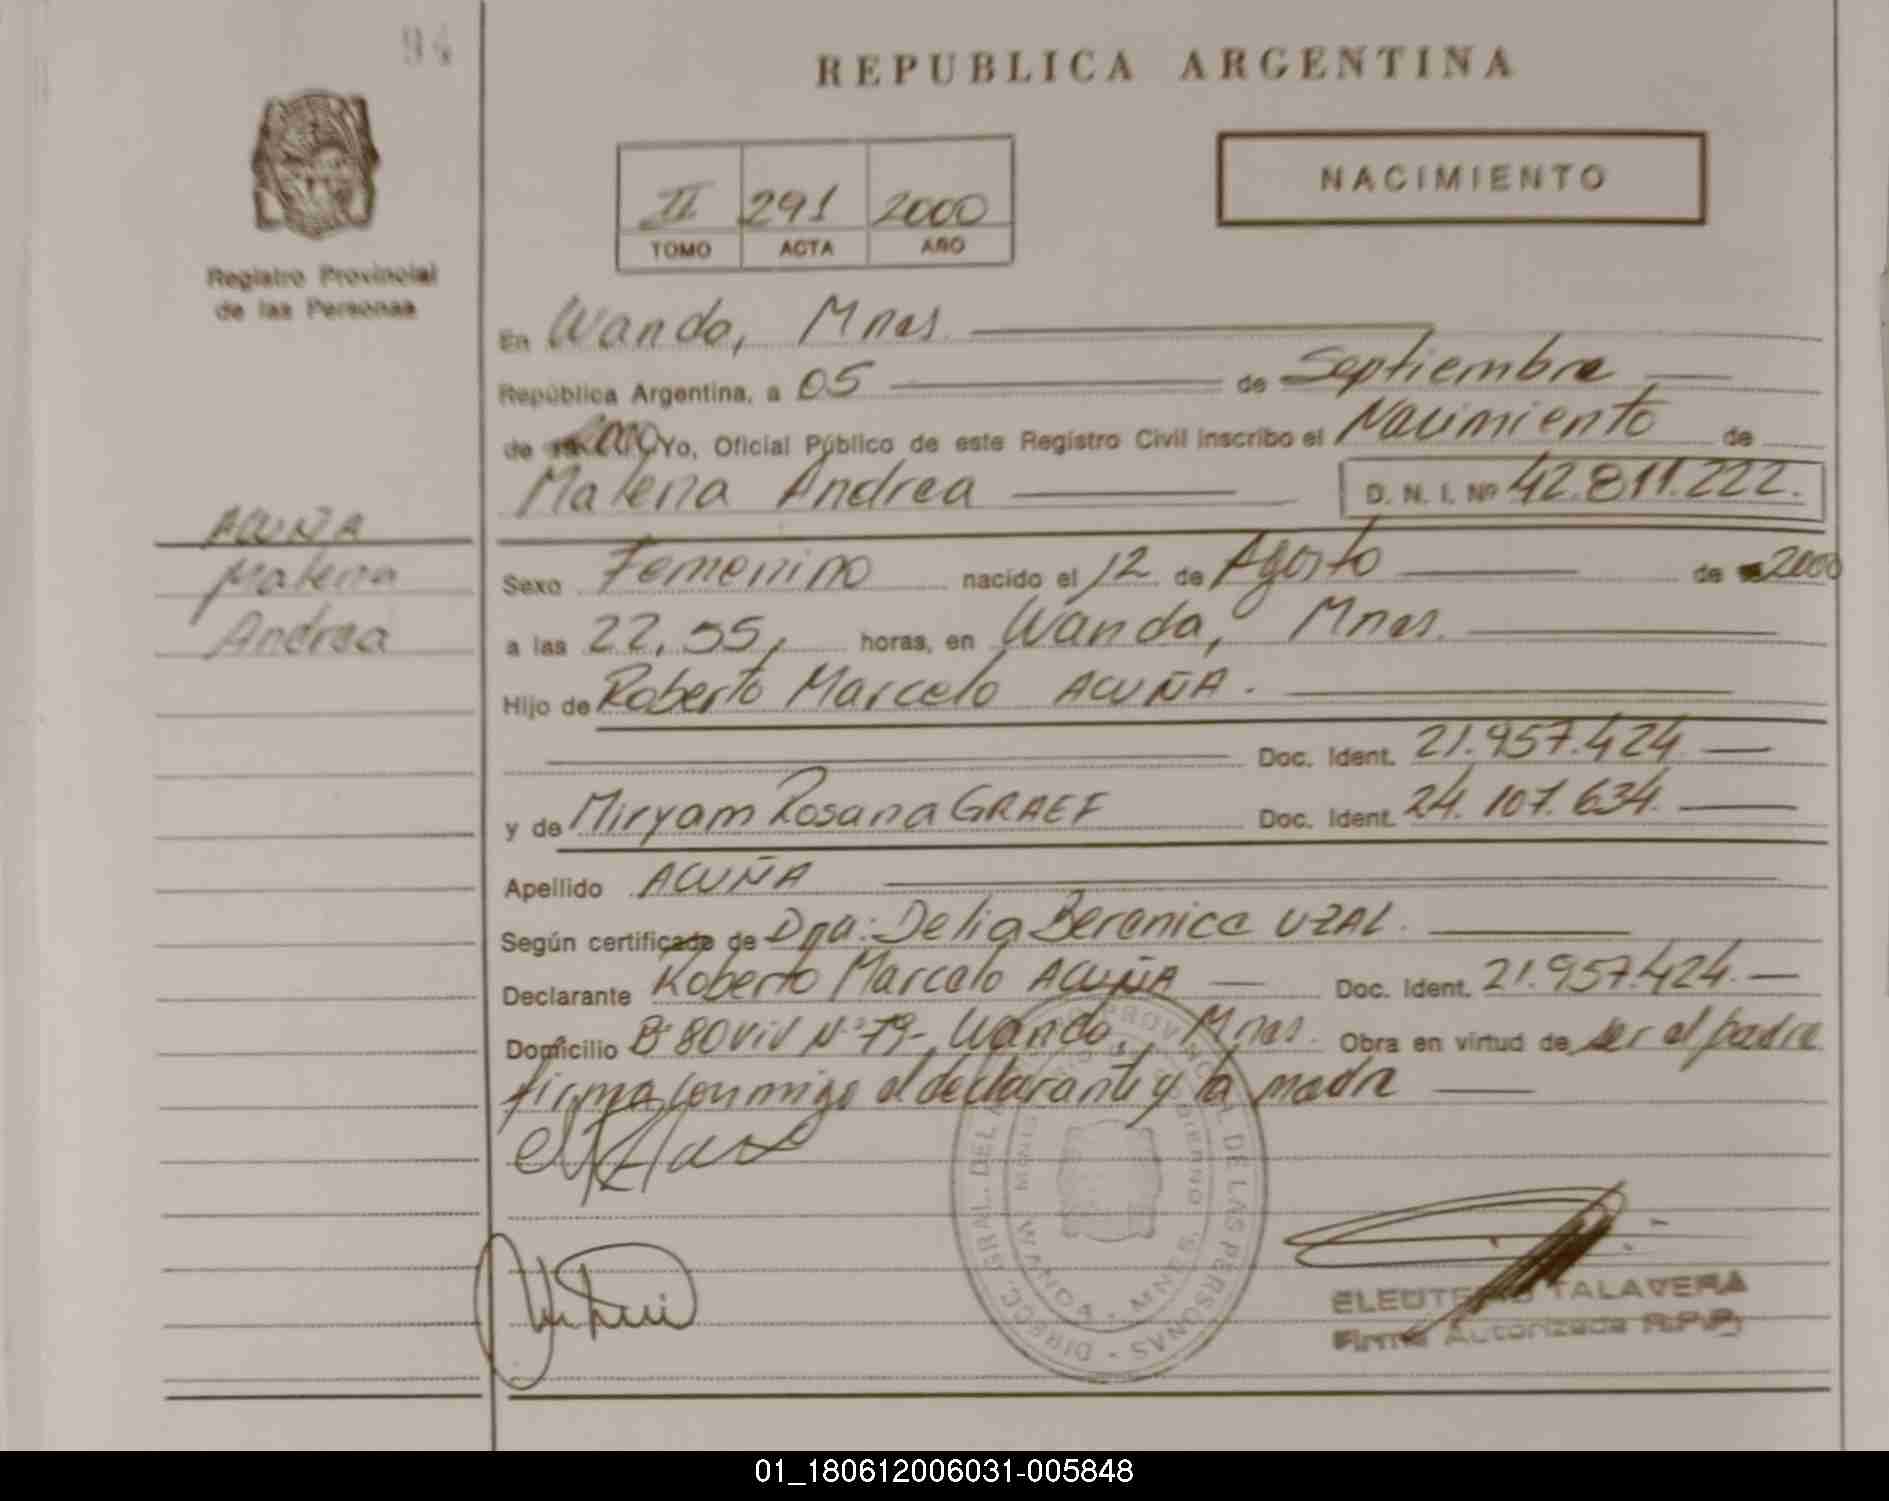 94
REPUBLICA ARGENTINA
NACIMIENTO
II 291 2000
TOMO ACTA AÑO
Registro Provincial
de las Personas
En Wanda, Mnes.
República Argentina, a 05 de Septiembre
de 2000 Yo, Oficial Público de este Registro Civil inscribo el Nacimiento de
Malena Andrea D. N. I. Nº 42.811.222.
ACUÑA
Malena
Andrea
Sexo Femenino nacido el 12 de Agosto de 2000
a las 22,55, horas, en Wanda, Mnes.
Hijo de Roberto Marcelo ACUÑA.
Doc. Ident. 21.957.424
y de Miryam Rosana GRAEF Doc. Ident. 24.107.634.
Apellido ACUÑA
Según certificado de Dra: Delia Berenice UZAL.
Declarante Roberto Marcelo ACUÑA Doc. Ident. 21.957.424.
Domicilio Bº 80 Viv Nº 79-, Wanda, Mnes. Obra en virtud de ser el padre
firma conmigo el declarante y la madre
DIRECC. GRAL. DEL PROVINCIAL DE LAS PERSONAS
WANDA - MNES.
ELEUTERIO TALAVERA
Firma Autorizada R.P.P.
01_180612006031-005848